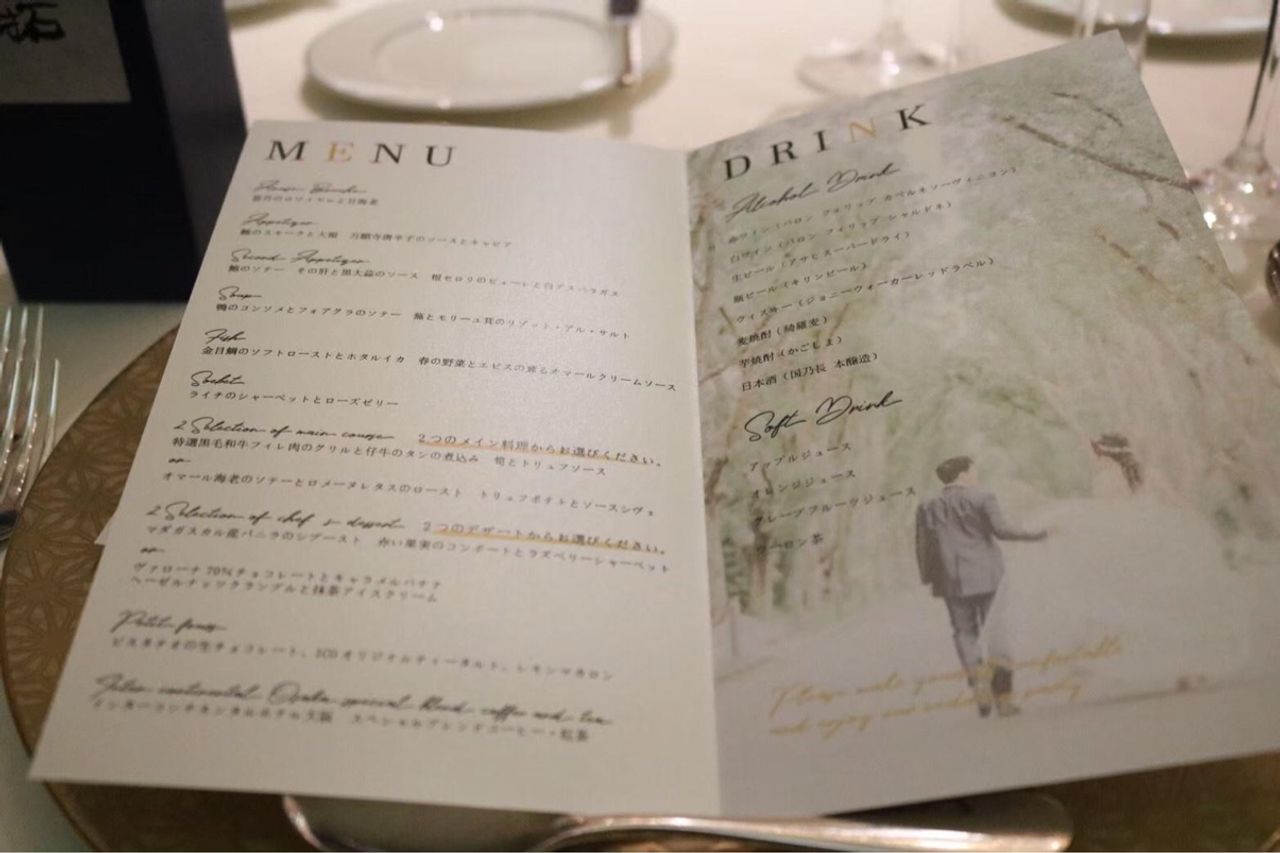 拓
MENU
Amuse Bouche
Appetizer
鰆のスモークと大根 万願寺唐辛子のソースとキャビア
Second Appetizer
鮑のソテー その肝と黒大蒜のソース 根セロリのピューレと白アスパラガス
Soup
鴨のコンソメとフォアグラのソテー 蕪とモリーユ茸のリゾット・アル・サルト
Fish
金目鯛のソフトローストとホタルイカ 春の野菜とエビスの薫るオマールクリームソース
Sorbet
ライチのシャーベットとローズゼリー
2 Selection of main course 2つのメイン料理からお選びください。
特選黒毛和牛フィレ肉のグリルと仔牛のタンの煮込み 筍とトリュフソース
or
オマール海老のソテーとロメーヌレタスのロースト トリュフポテトとソースシヴェ
2 Selection of chef's dessert 2つのデザートからお選びください。
マダガスカル産バニラのシブースト 赤い果実のコンポートとラズベリーシャーベット
or
ヴァローナ70%チョコレートとキャラメルバナナ
ヘーゼルナッツクランブルと抹茶アイスクリーム
Petit fours
ピスタチオの生チョコレート、ICOオリジナルティータルト、レモンマカロン
Inter continental Osaka special blend coffee and tea
インターコンチネンタルホテル大阪 スペシャルブレンドコーヒー・紅茶
DRINK
Alcohol Drink
赤ワイン(バロン フィリップ カベルネソーヴィニヨン)
白ワイン(バロン フィリップ シャルドネ)
生ビール(アサヒスーパードライ)
瓶ビール(キリンビール)
ウィスキー(ジョニーウォーカーレッドラベル)
麦焼酎(綺羅麦)
芋焼酎(かごしま)
日本酒(国乃長 本醸造)
Soft Drink
アップルジュース
オレンジジュース
グレープフルーツジュース
ウーロン茶
Please make yourself comfortable
and enjoy our wedding party